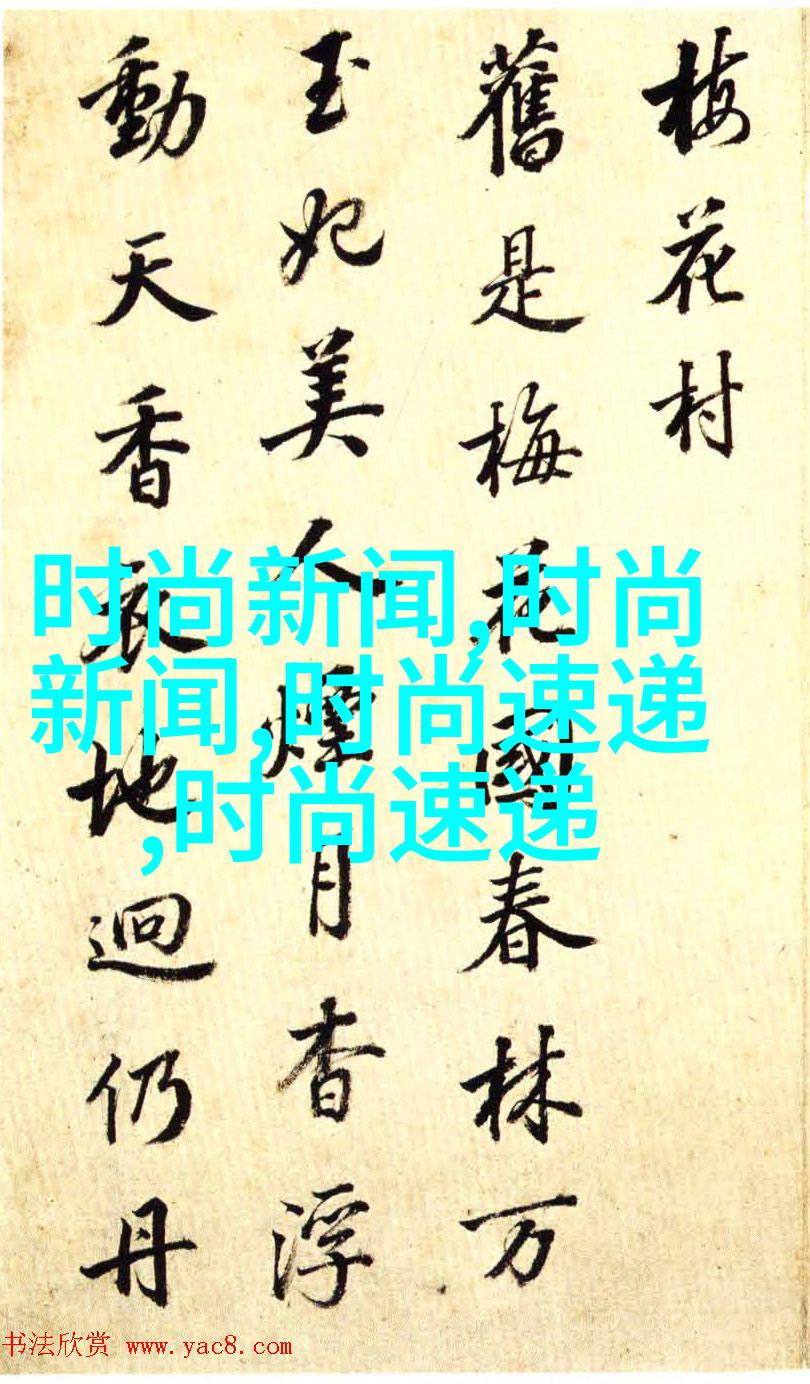 梅花村
舊是梅花國春林万
玉妃美人煙月杳浮
動天香地迥仍丹
时尚新闻,时尚
新闻,时尚速递
,时尚速递
书法欣赏 www.yac8.com